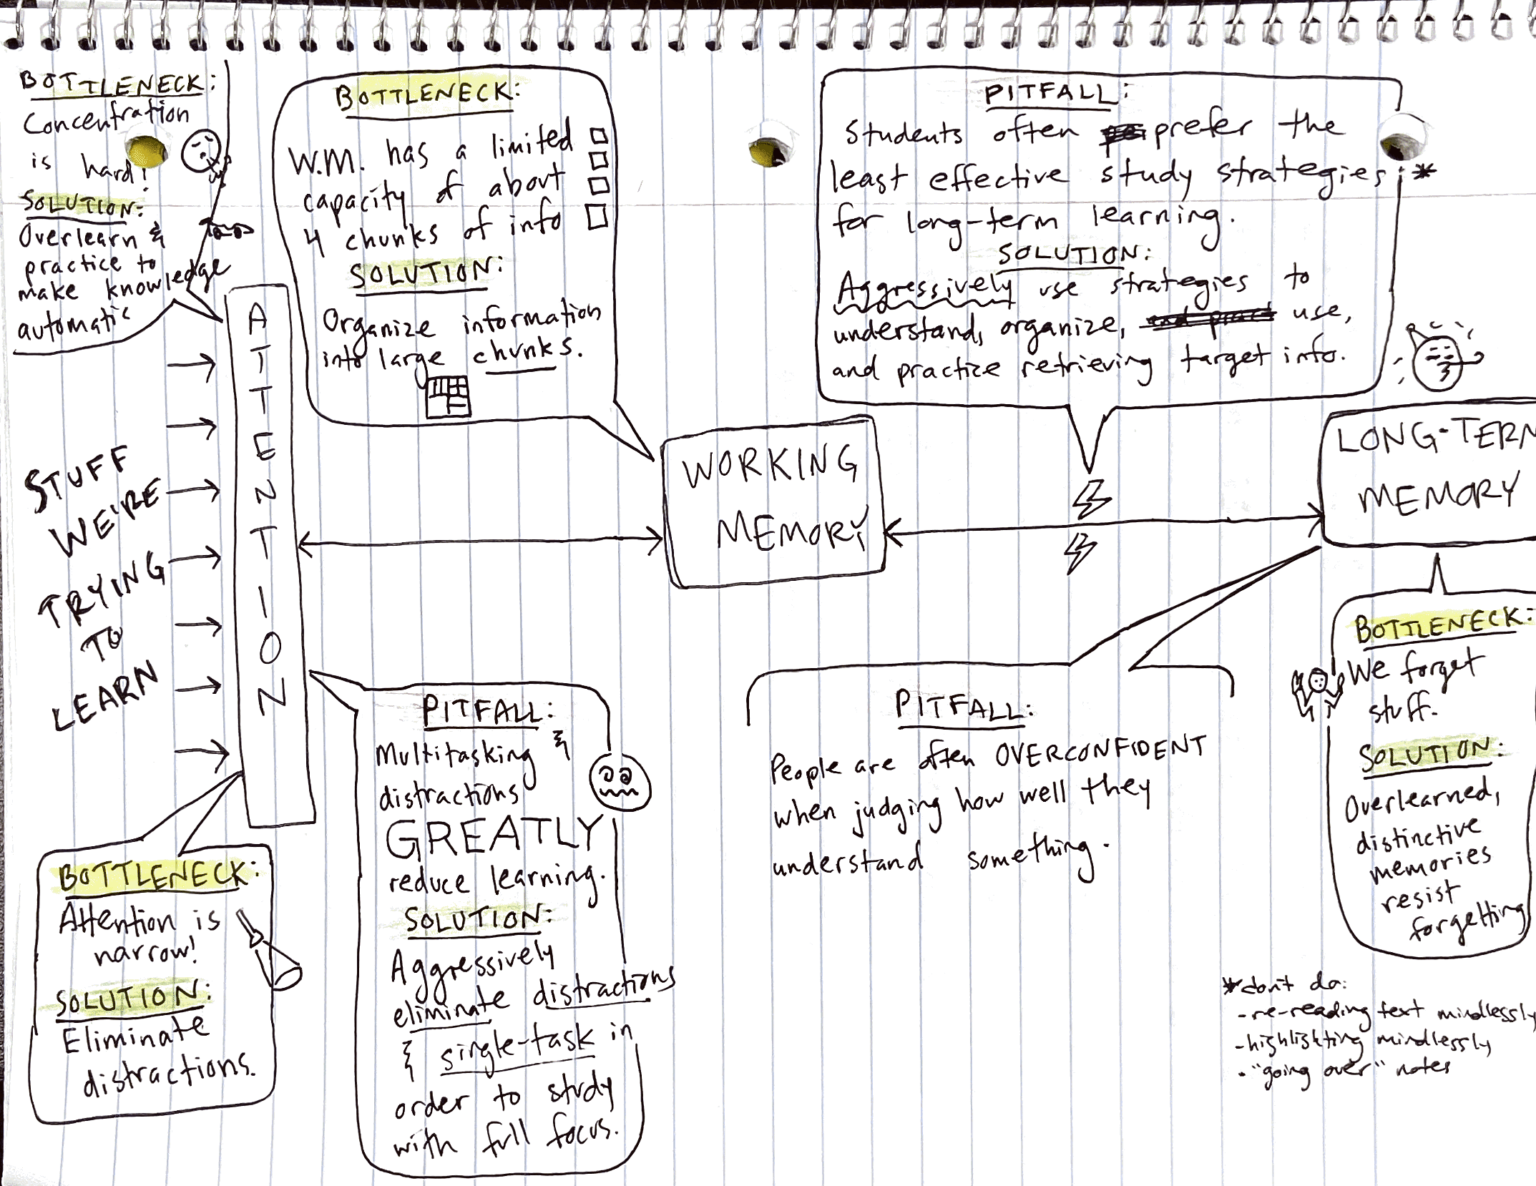 BOTTLENECK:
Concentration
is hard!
SOLUTION:
Overlearn &
practice to
make knowledge
automatic
BOTTLENECK:
W.M. has a limited
capacity of about
4 chunks of info
SOLUTION:
Organize information
into large chunks.
PITFALL:
Students often prefer the
least effective study strategies *
for long-term learning.
SOLUTION:
Aggressively use strategies to
understand, organize, use,
and practice retrieving target info.
STUFF
WE'RE
TRYING
TO
LEARN
ATTENTION
WORKING
MEMORY
LONG-TERM
MEMORY
BOTTLENECK:
Attention is
narrow!
SOLUTION:
Eliminate
distractions.
PITFALL:
Multitasking &
distractions
GREATLY
reduce learning.
SOLUTION:
Aggressively
eliminate distractions
& single-task in
order to study
with full focus.
PITFALL:
People are often OVERCONFIDENT
when judging how well they
understand something.
BOTTLENECK:
We forget
stuff.
SOLUTION:
Overlearned,
distinctive
memories
resist
forgetting
*don't do:
-re-reading text mindlessly
-highlighting mindlessly
-"going over" notes